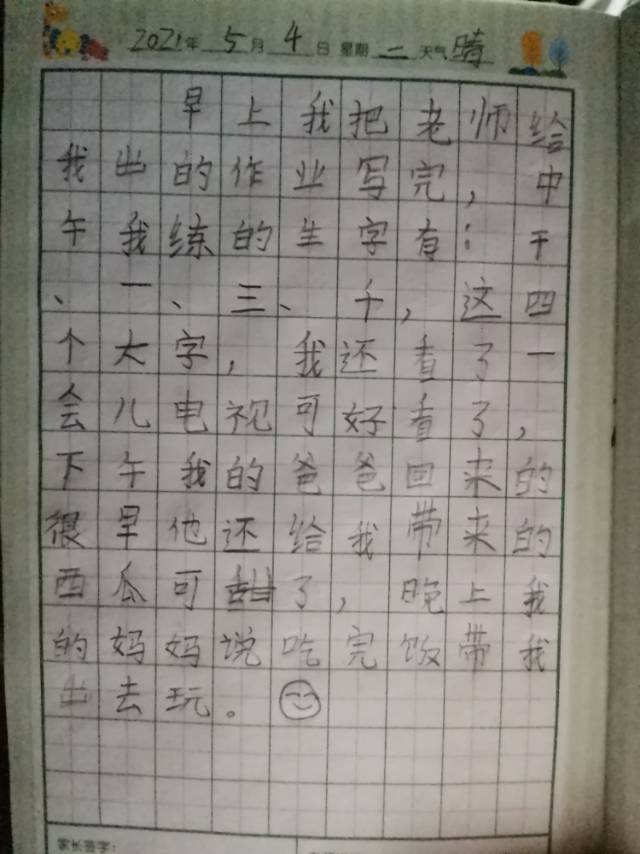 2021年5月4日 星期二 天气晴
早上我把老师给
我出的作业写完，中
午我练的生字有：干
、一、三、千，这四
个大字，我还看了一
会儿电视可好看了，
下午我的爸爸回来的
很早他还给我带来的
西瓜可甜了，晚上我
的妈妈说吃完饭带我
出去玩。
家长签字：